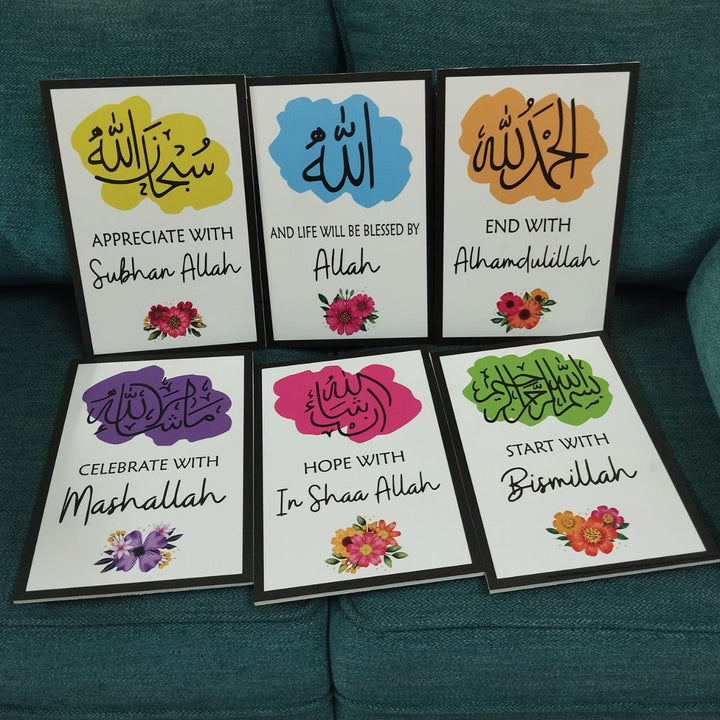 سُبْحَانَ اللّٰه
APPRECIATE WITH
Subhan Allah
اللّٰه
AND LIFE WILL BE BLESSED BY
Allah
الحَمْدُ لِلّٰه
END WITH
Alhamdulillah
مَا شَاءَ اللّٰه
CELEBRATE WITH
Mashallah
إن شاء الله
HOPE WITH
In Shaa Allah
بسم الله الرحمن الرحيم
START WITH
Bismillah